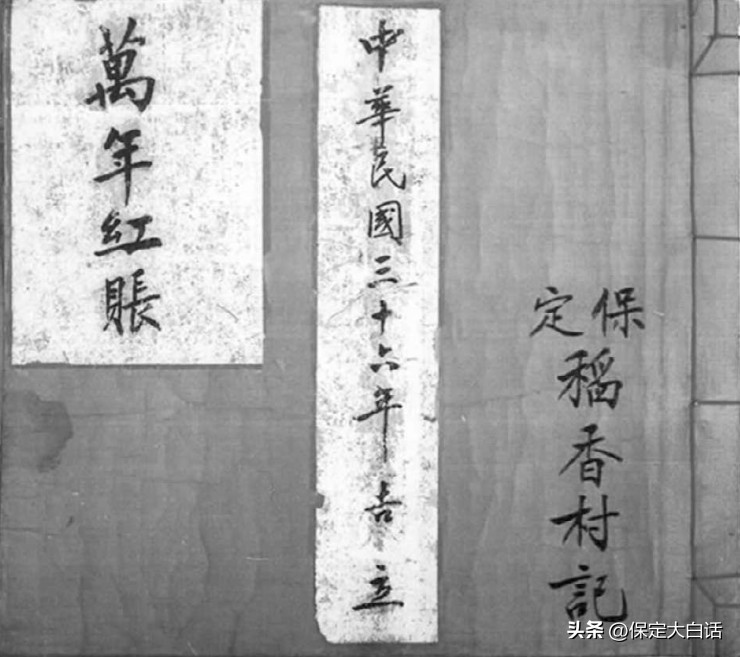 保定
稻香村記
中華民國三十六年吉立
萬年紅賬
头条 @保定大白话